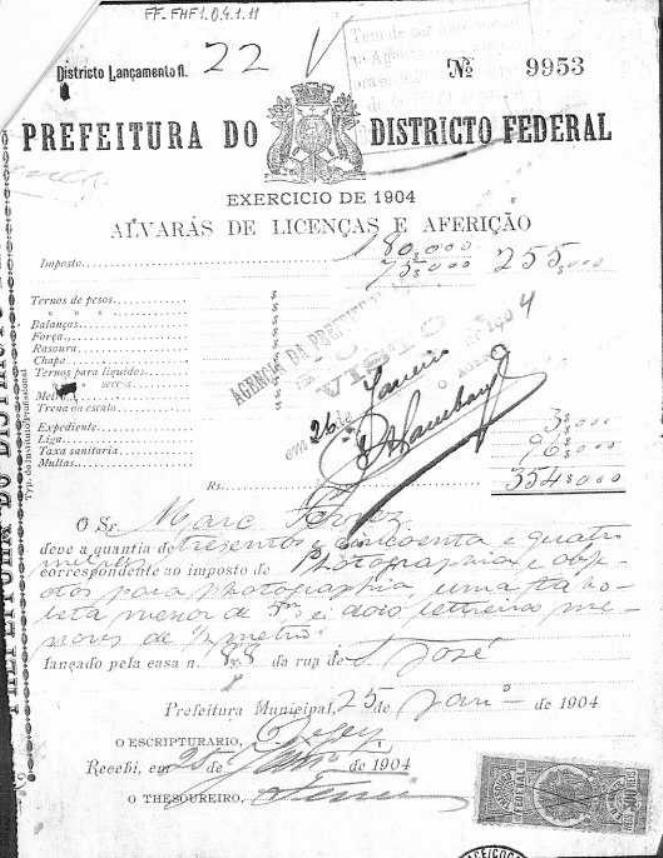 FF-FHF1.0.4.1.11
Districto Lançamento fl. 22
Nº 9953
PREFEITURA DO DISTRICTO FEDERAL
EXERCICIO DE 1904
ALVARÁS DE LICENÇAS E AFERIÇÃO
Imposto 180$000
75$000 255$000
Ternos de pesos $
" " " $
Balanças $
Força $
Rasoura $
Chapa $
Ternos para liquidos $
" " seccos $
Metro $
Trena ou escala $
AGENCIA DA PREFEITURA
VISTO
em 26 de Janeiro de 1904
Expediente 3$000
Liga
Taxa sanitaria 96$000
Multas
Rs. 354$000
O Sr. Marc Ferrez
deve a quantia de tresentos e cincoenta e quatro
mil reis
correspondente ao imposto de Photographia e obje-
ctos para photographia, uma tabo-
leta menor de 5m e dois letreiros me-
nores de 1/2 metro.
lançado pela casa n. 88 da rua de S. José
Prefeitura Municipal, 25 de Janº de 1904
O ESCRIPTURARIO,
Recebi, em 25 de Janº de 1904
O THESOUREIRO,
Typ. do Instituto Profissional